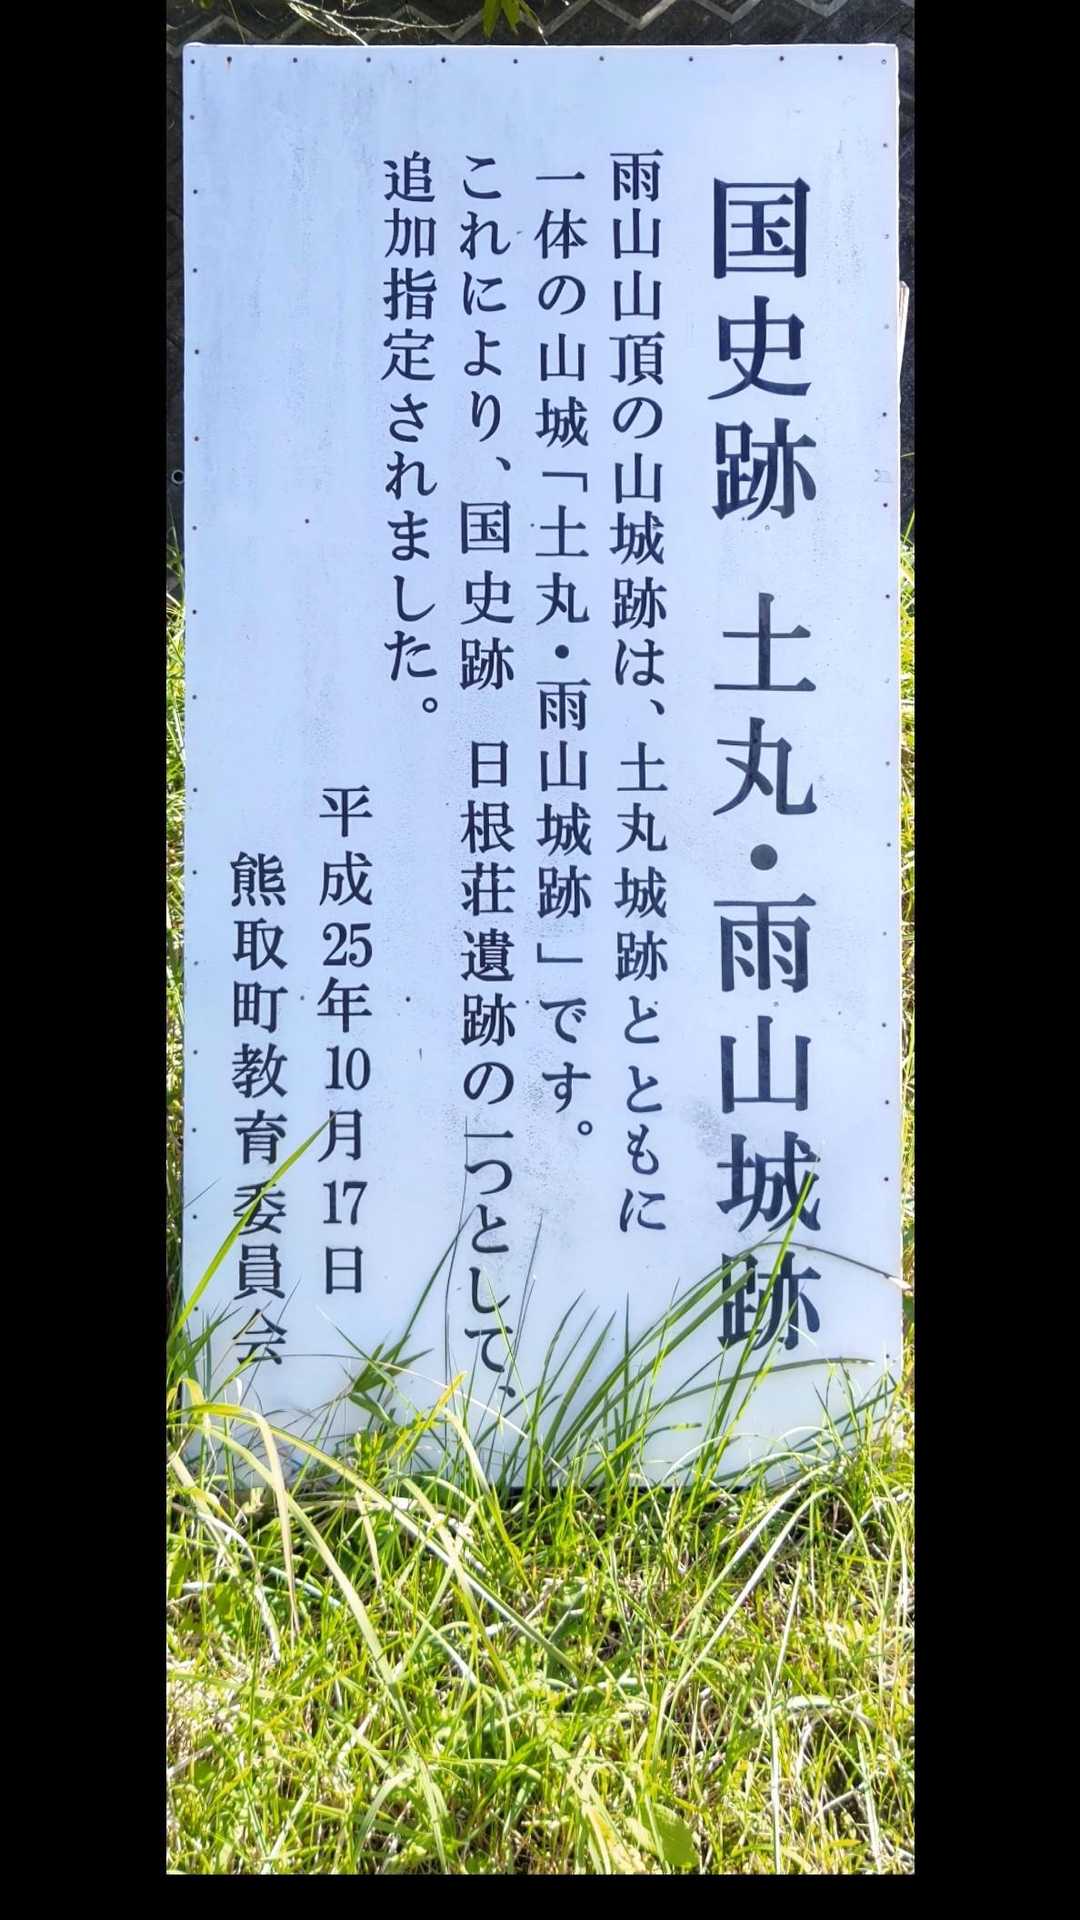 国史跡 土丸・雨山城跡
雨山山頂の山城跡は、土丸城跡とともに
一体の山城「土丸・雨山城跡」です。
これにより、国史跡 日根荘遺跡の一つとして、
追加指定されました。
平成25年10月17日
熊取町教育委員会